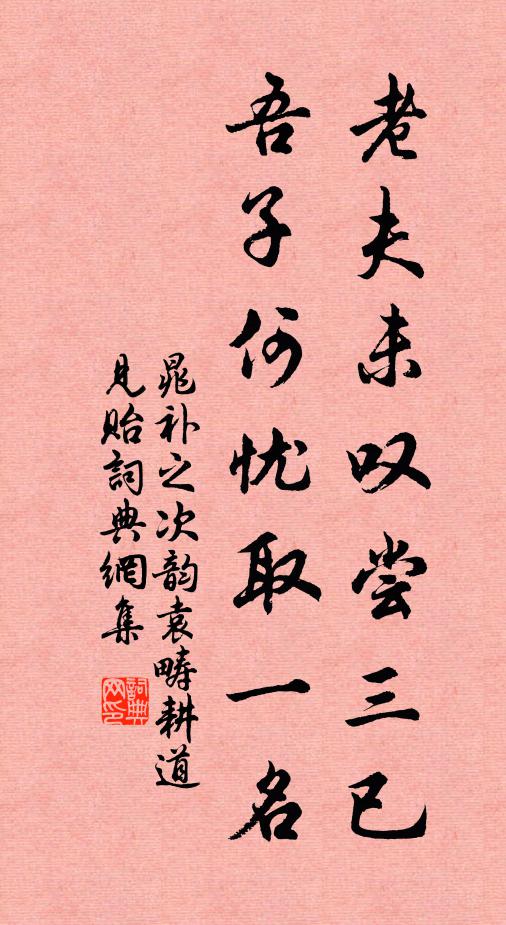 老夫未叹尝三已
吾子何忧取一名
晁补之次韵袁畴耕道
见贻詞典網集
詞典网印